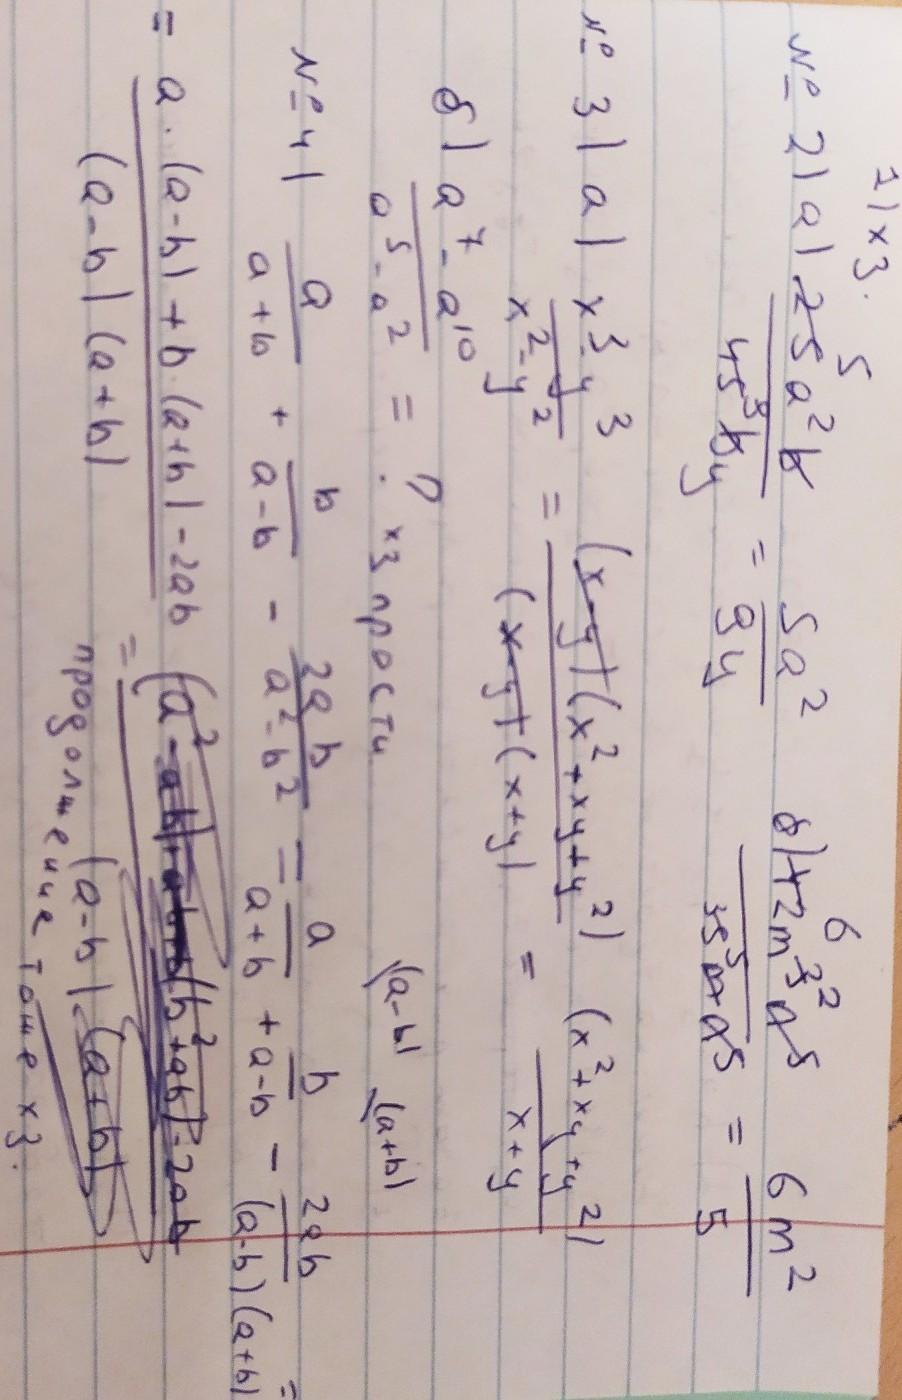 1) хз.
№ 2) а) 25⁵a²b / 45⁹by = 5a² / 9y б) 42⁶m³²n⁵ / 35⁵mn⁵ = 6m² / 5
№ 3) а) x³-y³ / x²-y² = (x-y)(x²+xy+y²) / (x-y)(x+y) = (x²+xy+y²) / x+y
б) a⁷-a¹⁰ / a⁵-a² = ? хз прости
(a-b) (a+b)
№ 4) a / a+b + b / a-b - 2ab / a²-b² = a / a+b + b / a-b - 2ab / (a-b)(a+b) =
= a·(a-b)+b·(a+b)-2ab / (a-b)(a+b) = (a²-ab)+(b²+ab)-2ab / (a-b)·(a+b)
продолжение тоже хз.